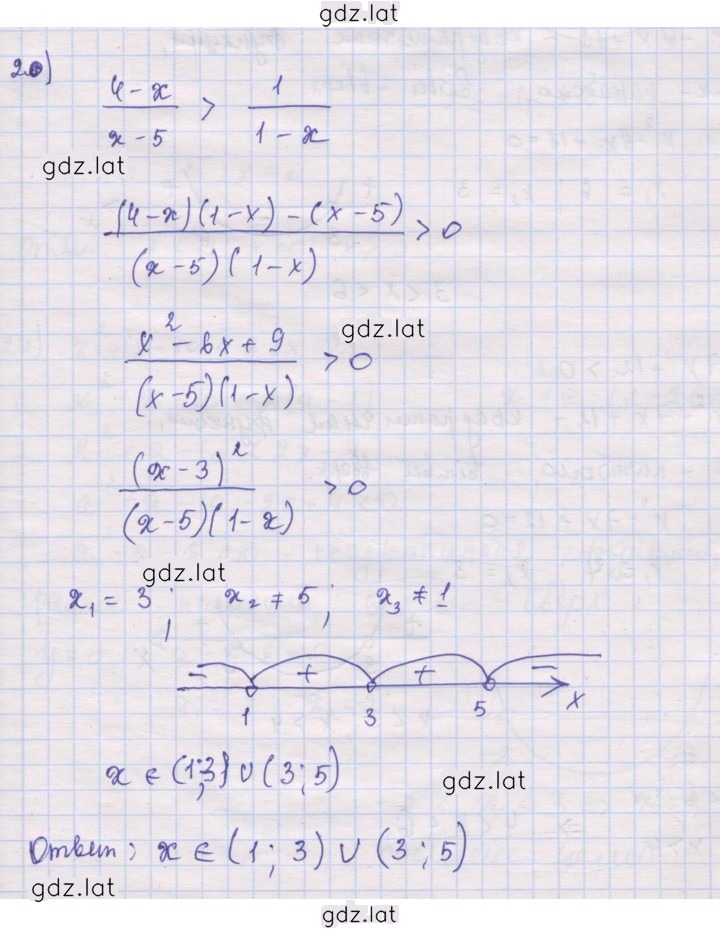 gdz.lat
20)
(4-x)/(x-5) > 1/(1-x)
gdz.lat
((4-x)(1-x)-(x-5))/((x-5)(1-x)) > 0
gdz.lat
(x²-6x+9)/((x-5)(1-x)) > 0
(x-3)²/((x-5)(1-x)) > 0
gdz.lat
x₁ = 3; x₂ ≠ 5; x₃ ≠ 1
- + + -
1 3 5 x
x ∈ (1;3) ∪ (3;5)
gdz.lat
Ответ: x ∈ (1; 3) ∪ (3; 5)
gdz.lat
gdz.lat